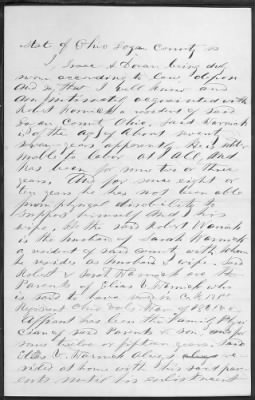 State of Ohio Logan County ss
I, Isaac S Doran being duly
sworn according to law depose
and say that I well know and
am intimately acquainted with
Robert Warnick a resident of said
Logan County Ohio, Said Warnick
is of the age of about seventy
seven years apparently He is not able
to labor at all, And
has been for months or three
years. And for some eight or
ten years he has not been able
from physical disability to
support himself and his
wife. He the said Robert Warnick
is the husband of Sarah Warnick
a resident of said County with whom
he resides as husband & wife. Said
Robert & Sarah Warnick are the
Parents of Elias V. Warnick who
is said to have served in Co. K
Regiment Ohio Vols War of 1861.
Affiant has been the family Phy
sician of said Parents & son
some twelve or fifteen years. Said
Elias V. Warnick always re-
sided at home with his said par
ents until his enlistment